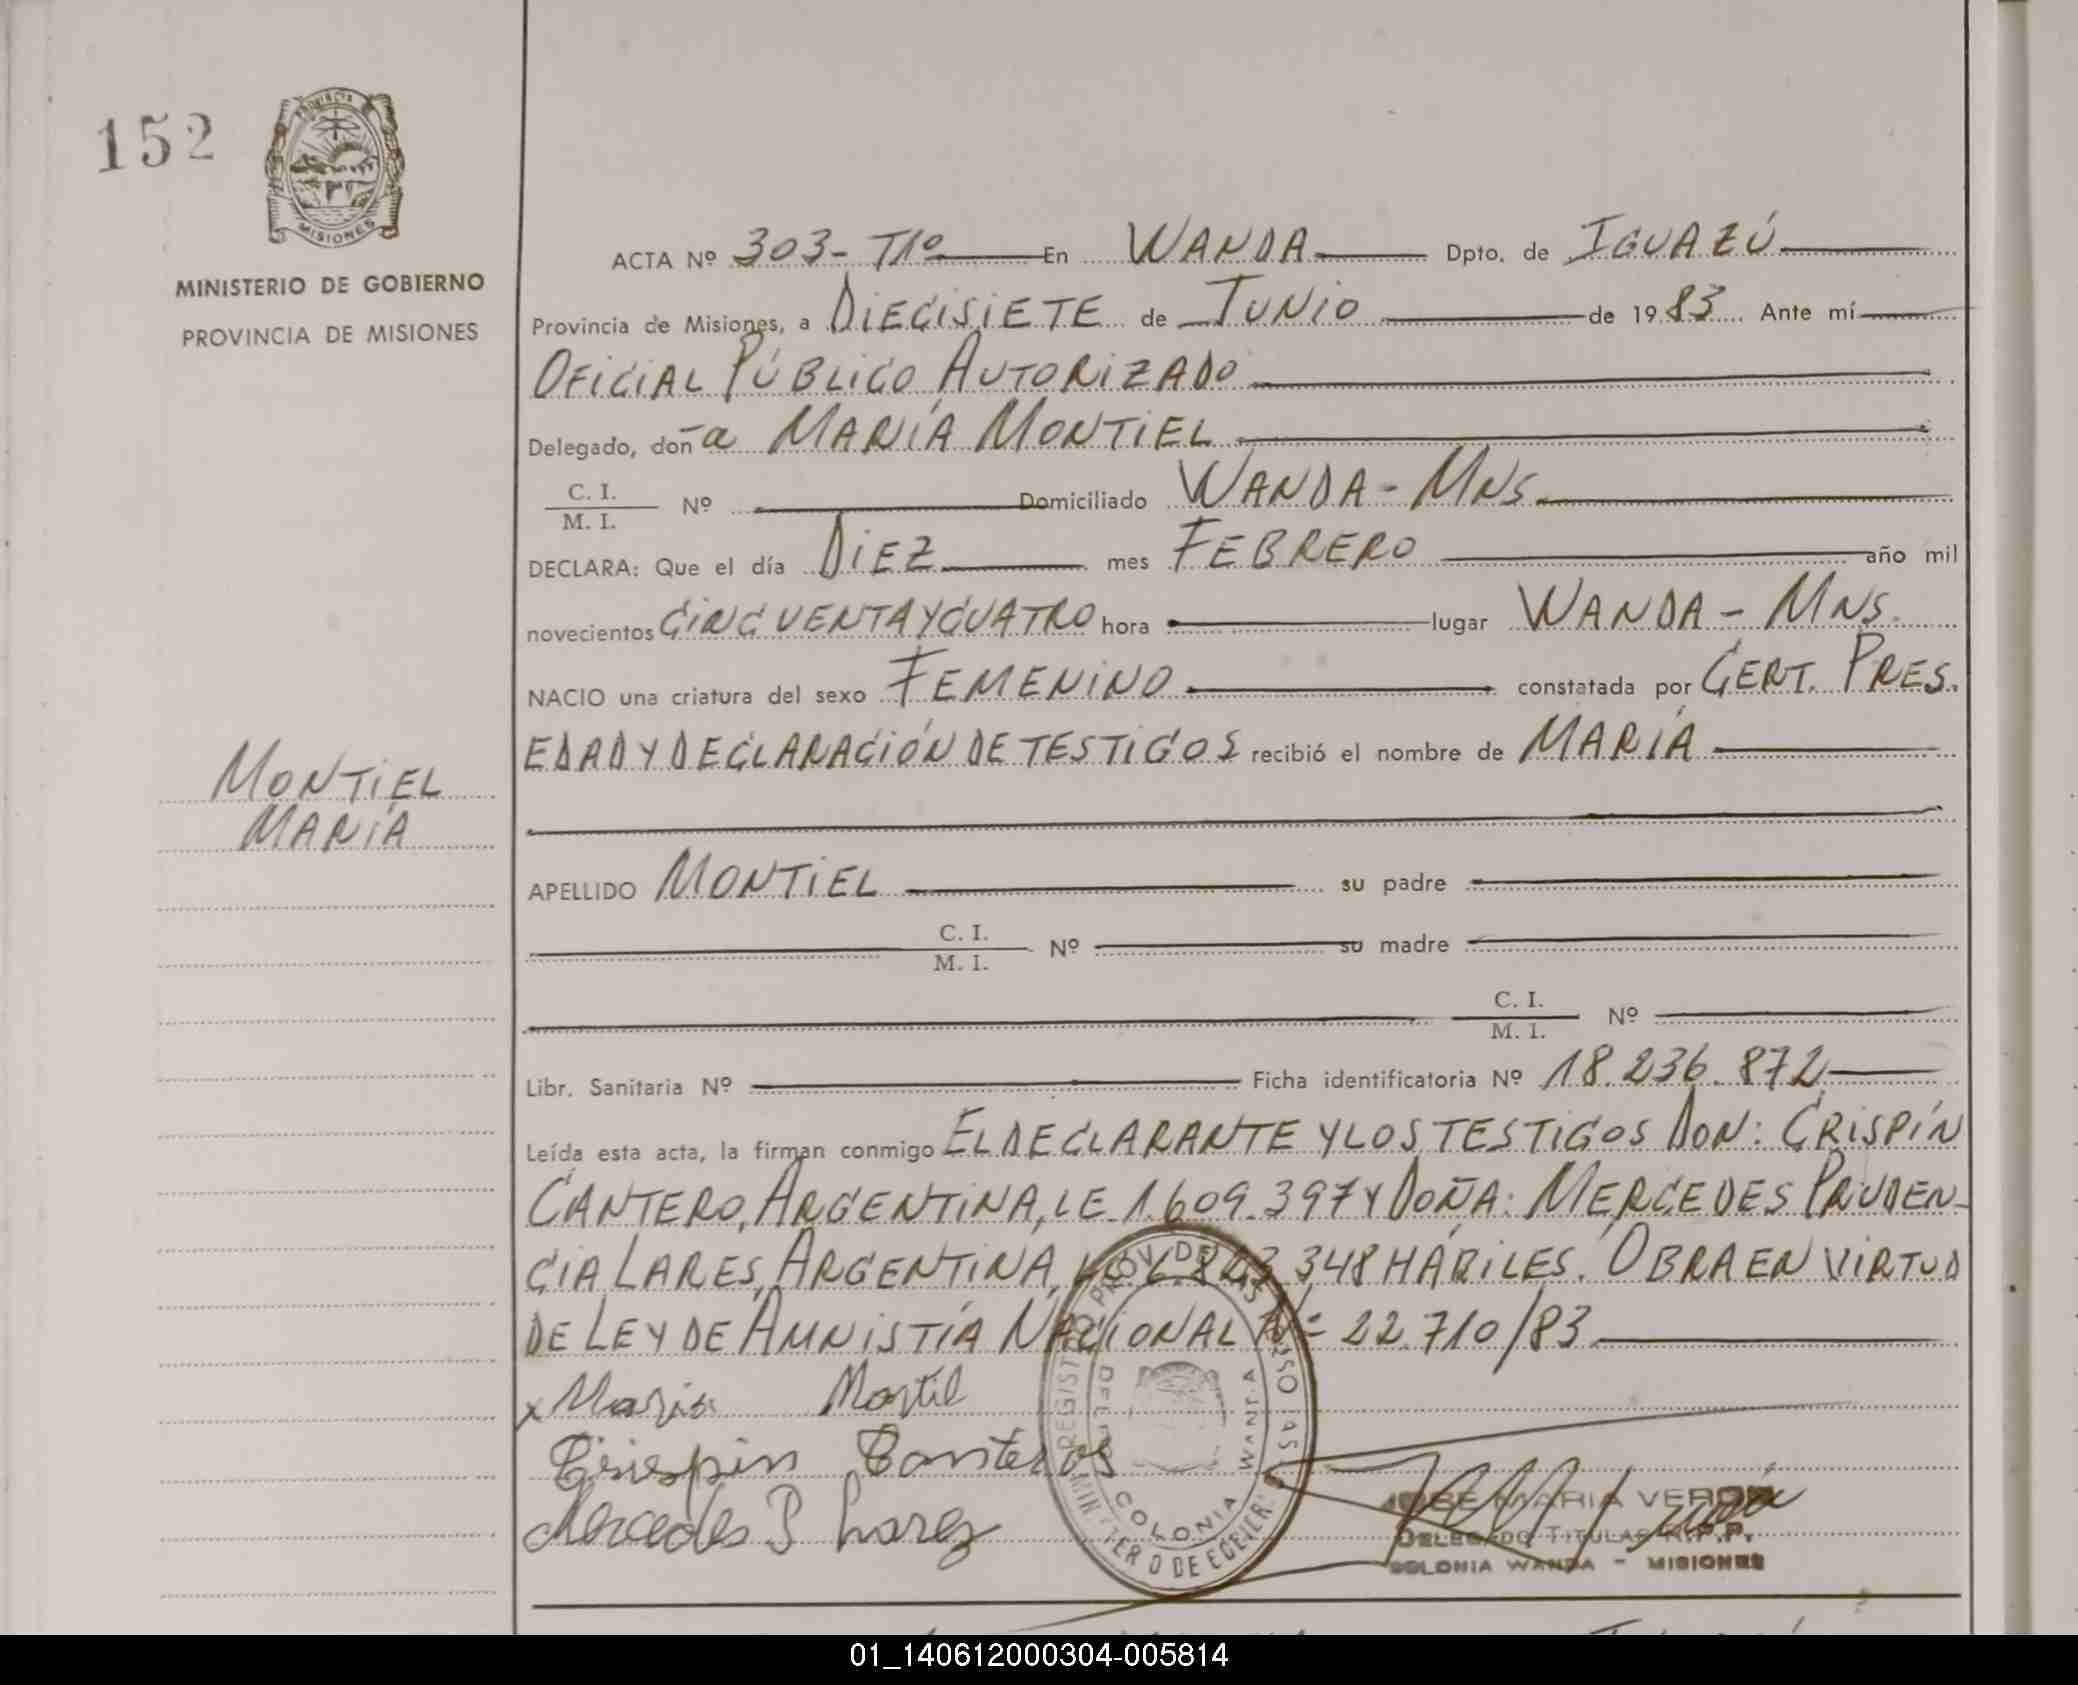 152
PROVINCIA
MISIONES
MINISTERIO DE GOBIERNO
PROVINCIA DE MISIONES
ACTA Nº 303- T1º En WANDA Dpto. de IGUAZÚ
Provincia de Misiones, a DIECISIETE de JUNIO de 1983 Ante mí
OFICIAL PÚBLICO AUTORIZADO
Delegado, doña MARÍA MONTIEL
C. I.
M. I. Nº Domiciliado WANDA - MNS.
DECLARA: Que el día DIEZ mes FEBRERO año mil
novecientos CINCUENTA Y CUATRO hora lugar WANDA - MNS.
NACIO una criatura del sexo FEMENINO constatada por CERT. PRES.
EDAD Y DECLARACIÓN DE TESTIGOS recibió el nombre de MARÍA
MONTIEL
MARÍA
APELLIDO MONTIEL su padre
C. I.
M. I. Nº su madre
C. I.
M. I. Nº
Libr. Sanitaria Nº Ficha identificatoria Nº 18.236.872
Leída esta acta, la firman conmigo EL DECLARANTE Y LOS TESTIGOS DON: CRISPÍN
CANTERO, ARGENTINA, LE. 1.609.397 Y DOÑA: MERCEDES PRUDEN-
CIA LARES, ARGENTINA, 348 HÁBILES. OBRA EN VIRTUD
DE LEY DE AMNISTÍA NACIONAL Nº 22.710/83
x Maria Montil
Crispin Canteros
Mercedes P Lares
COLONIA WANDA
JOSE MARIA VERON
DELEGADO TITULAR R.P.P.
COLONIA WANDA - MISIONES
01_140612000304-005814